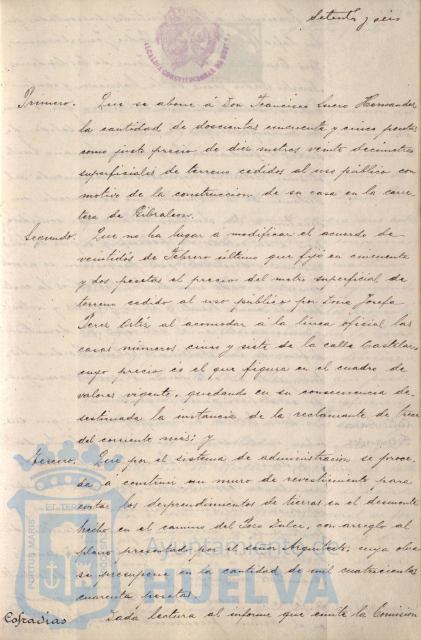 Setenta y seis
ALCALDIA CONSTITUCIONAL DE HUELVA
Primero. Que se abone á Don Francisco Suero Hernandez
la cantidad de doscientas cincuenta y cinco pesetas
como justo precio de diez metros veinte decimetros
superficiales de terreno cedidos al uso público con
motivo de la construccion de su casa en la carre-
tera de Gibraleon.
Segundo. Que no ha lugar a modificar el acuerdo de
veintidós de Febrero último que fijó en cincuenta
y dos pesetas el precio del metro superficial de
terreno cedido al uso público por Doña Josefa
Perez al acomodar á la línea oficial las
casas números cinco y siete de la calle Castelar,
cuyo precio es el que figura en el cuadro de
valores vigente, quedando en su consecuencia de-
sestimada la instancia de la reclamante de trece
del corriente mes; y
Tercero. Que por el sistema de administracion se proce-
da á construir un muro de revestimiento para
evitar los desprendimientos de tierras en el desmonte
hecho en el camino del con arreglo al
plano presentado por el señor Arquitecto, cuya obra
se presupone en la cantidad de mil cuatrocientas
cuarenta pesetas.
Cofradías Dada lectura al informe que emite la Comision
PORTUS MARIS ET TERRAE CUSTODIA
Ayuntamiento de
HUELVA